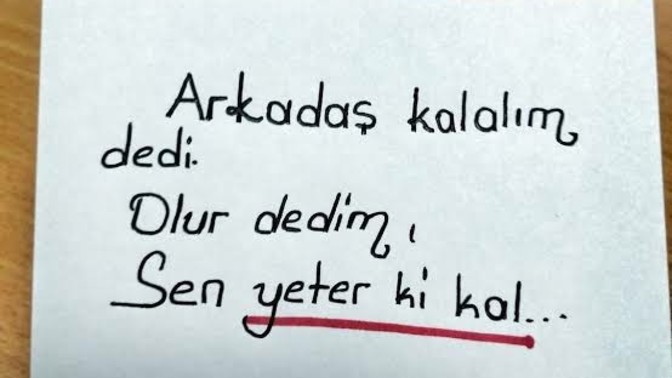 Arkadaş kalalım
dedi.
Olur dedim,
Sen yeter ki kal...